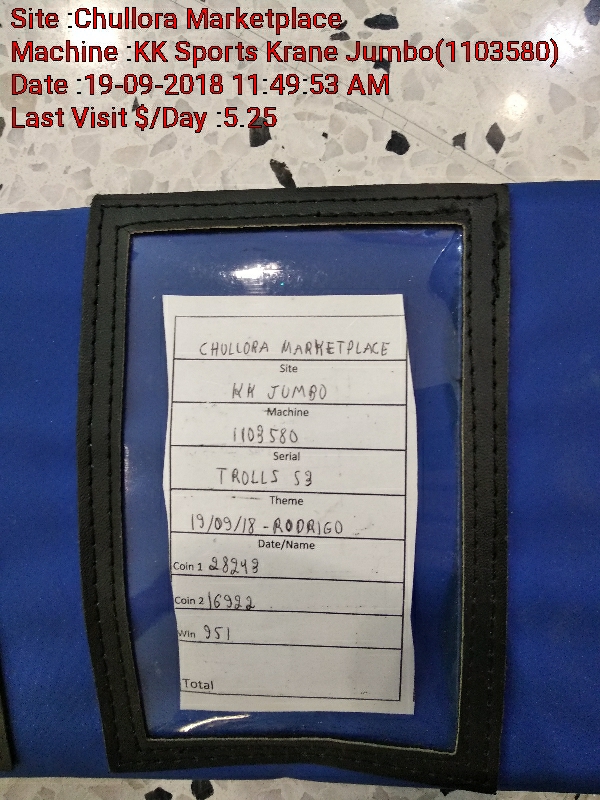 Site :Chullora Marketplace
Machine :KK Sports Krane Jumbo(1103580)
Date :19-09-2018 11:49:53 AM
Last Visit $/Day :5.25
CHULLORA MARKETPLACE
Site
KK JUMBO
Machine
1103580
Serial
TROLLS S3
Theme
19/09/18 - RODRIGO
Date/Name
Coin 1 28243
Coin 2 16922
Win 951
Total